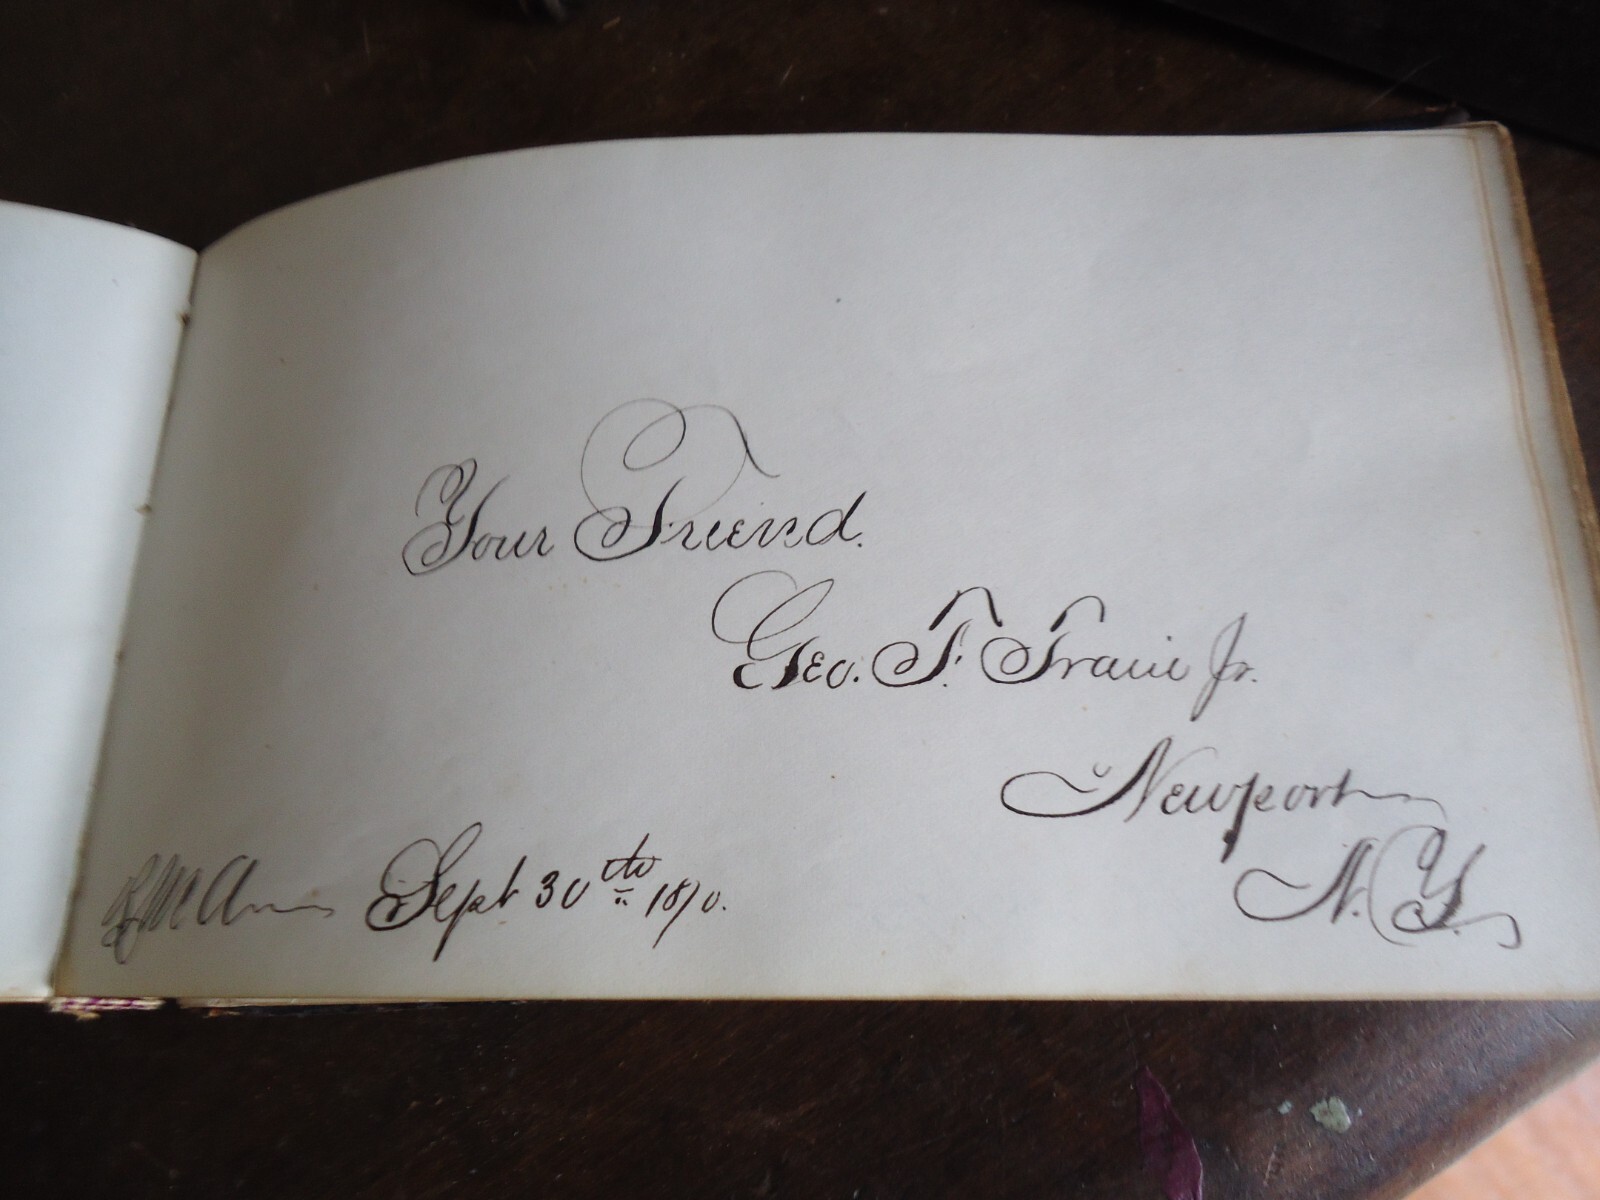 Your Friend.
Geo. F. Travis Jr.
Newport
N. Y.
Sept 30th 1870.